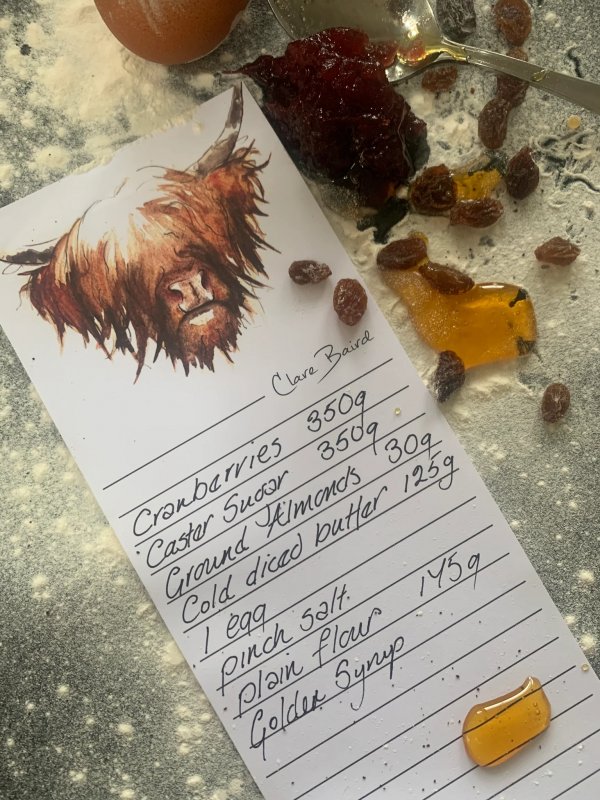 Clare Baird
Cranberries 350g
Caster Sugar 350g
Ground Almonds 30g
Cold diced butter 125g
1 egg
pinch salt.
plain flour 175g
Golden Syrup